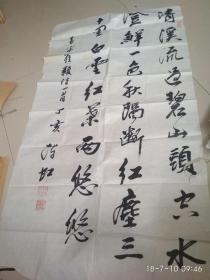 清溪流過碧山頭空水
澄鮮一色秋隔斷紅塵三
十里白雲紅葉兩悠悠
一首丁亥
18-7-10 09:46